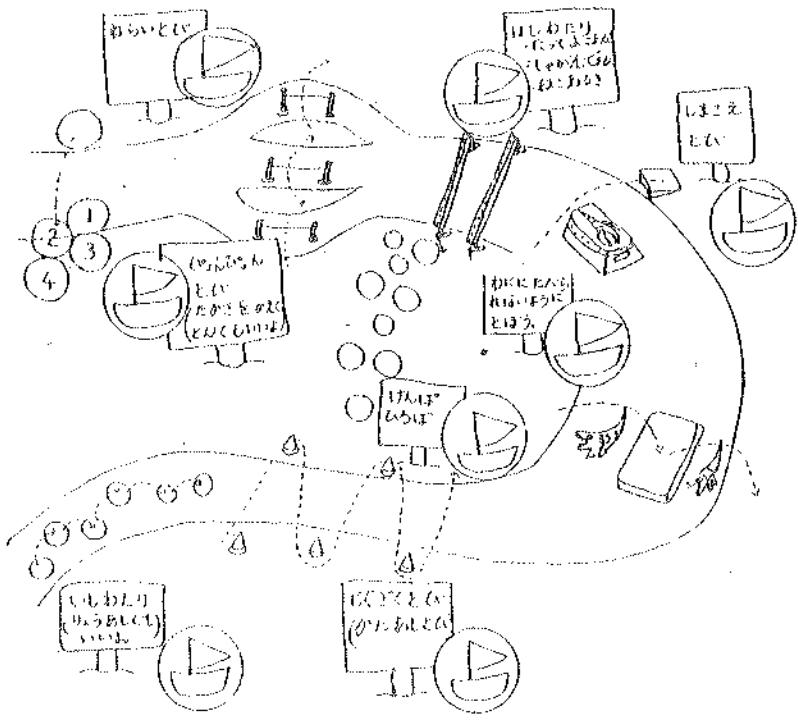 ねらいとび
はしわたり
ねこあるき
しまこえ
とび
1
2
3
4
ぴょんぴょん
とび
たかさをかえて
とんでもいいよ
わにに たべら
れないように
とぼう
けんぱ
ひろば
いしわたり
(りょうあしでも
いいよ
じぐざぐとび
(かたあしとび)